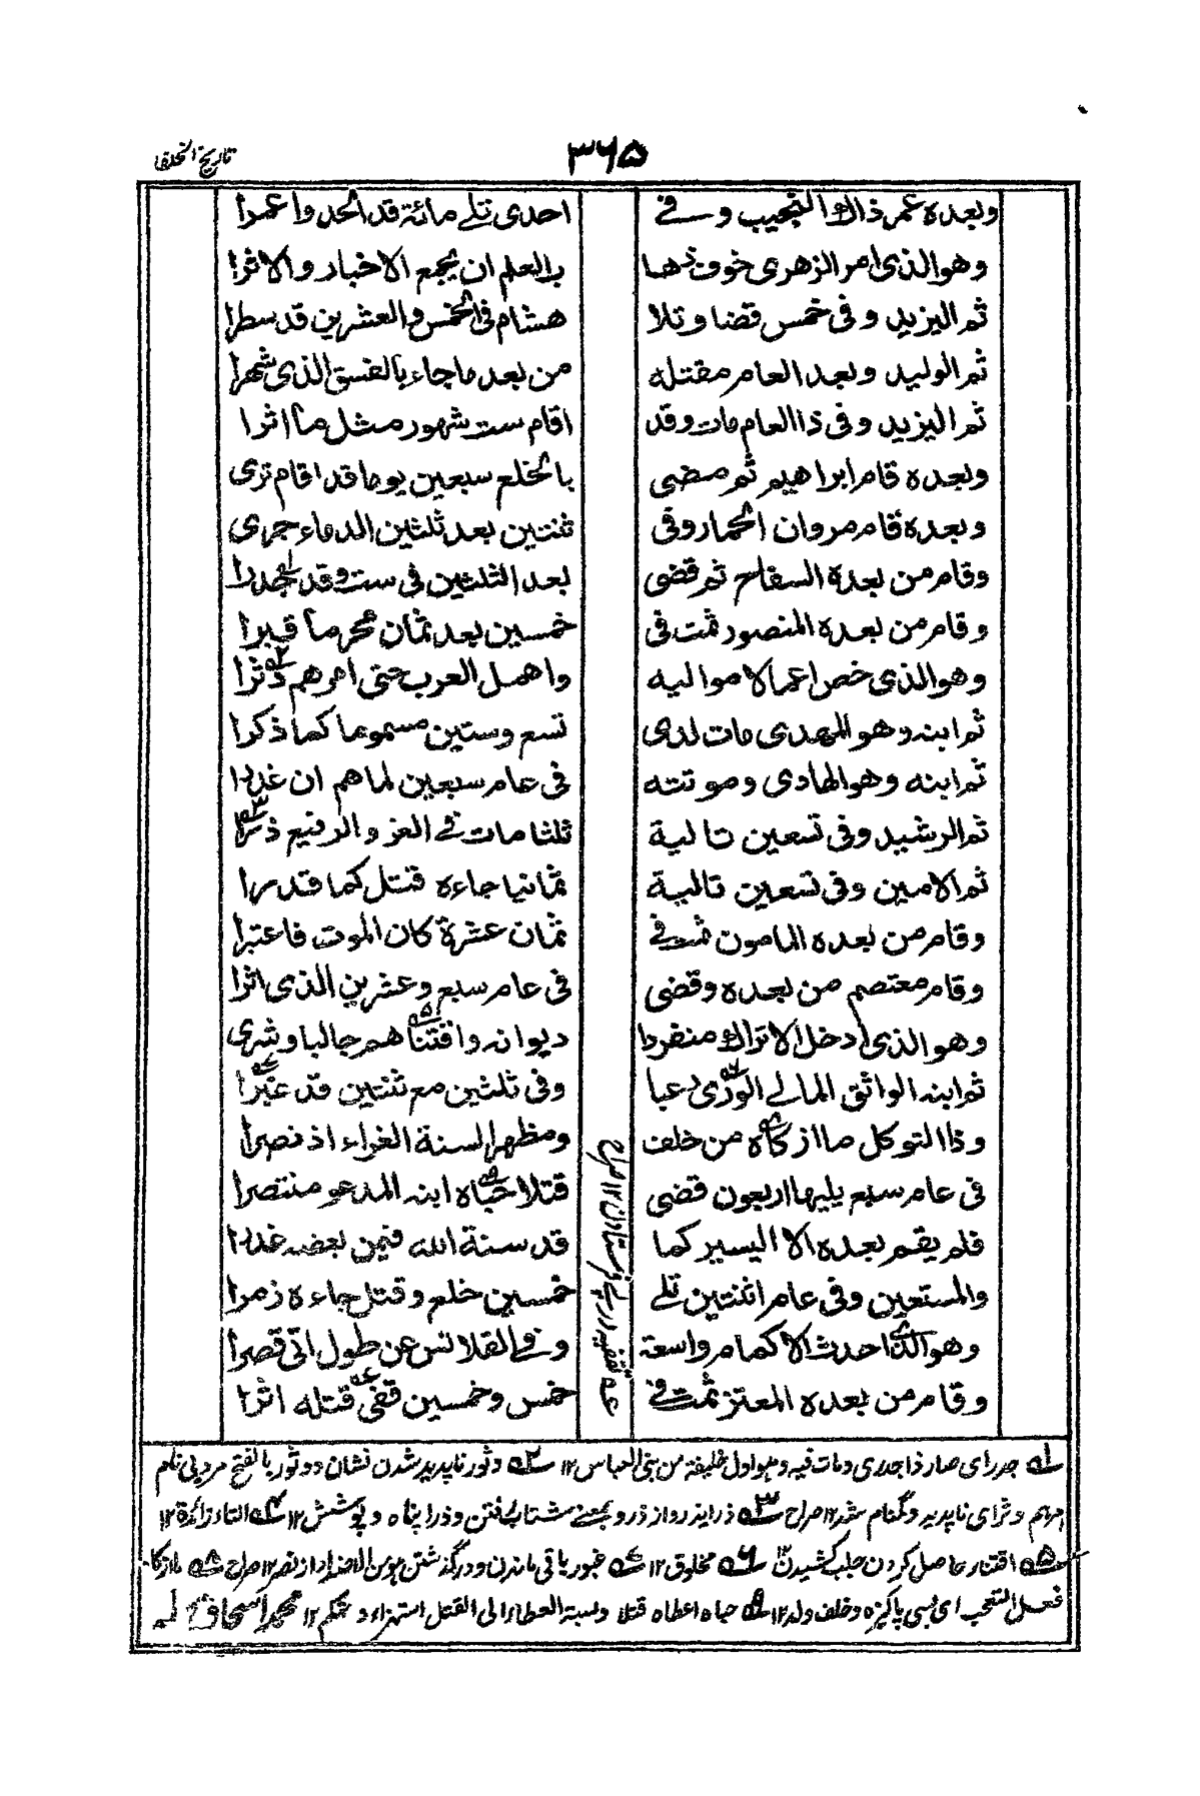 تاريخ الخلفا
٣٦٥
وبعده عمر ذاك النجيب وفي احدى تلي مائة قد الحدوا عمرا
وهو الذي امر الزهري خوف ذها ب العلم ان يجمع الاخبار والاثرا
ثم اليزيد وفي خمس قضا وتلا هشام في الخمس والعشرين قد سطرا
ثم الوليد وبعد العام مقتله من بعد ما جاء بالفسق الذي شهرا
ثم اليزيد وفي ذا العام مات وقد اقام ست شهور مثل ما اثرا
وبعده قام ابراهيم ثم مضى بالخلع سبعين يوما قد اقام ترى
وبعده قام مروان الحمار وفي ثنتين بعد ثلثين الدماء جرى
وقام من بعدة السفاح ثم قضى بعد الثلثين في ست وقد جدرا
وقام من بعده المنصور ثمت في خمسين بعد ثمان محرما قبرا
وهو الذي خص اعمالا مواليه واهمل العرب حتى امرهم دثرا
ثم ابنه وهو المهدي مات لدى تسع وستين مسموما كما ذكرا
ثم ابنه وهو الهادي وموتته في عام سبعين لما هم ان غدرا
ثم الرشيد وفي تسعين تالية ثلثا مات في الغزو الرفيع ذرا
ثم الامين وفي تسعين تالية ثمانيا جاءه قتل كما قدرا
وقام من بعده المامون ثمت في ثمان عشرة كان الموت فاعتبرا
وقام معتصم من بعده وقضى في عام سبع وعشرين الذي اثرا
وهو الذي ادخل الاتراك منفردا ديوانه واقتناهم جالبا وشرى
ثم ابنه الواثق المالي الورى رعبا وفي ثلثين مع ثنتين قد غبرا
وذا التوكل ما ازكاه من خلف ومظهر السنة الغراء اذ نصرا
في عام سبع يليها اربعون قضى قتلا حباه ابنه المدعو منتصرا
فلم يقم بعده الا اليسير كما قد سنة الله فيمن بعضه غدرا
والمستعين وفي عام اثنتين تلي خمسين خلع وقتل جاءه زمرا
وهو الذي احدث الاكمام واسعة وفي القلانس عن طول اتى قصرا
وقام من بعده المعتز ثمت في خمس وخمسين قفى قتله اثرا
عه تقفيه در پي فرستادن ١٢ صراح
١ه جدر اي صار ذا جدري ومات فيه وهو اول خليفة من بني العباس ١٢ ٢ه دثور ناپديد شدن نشان دثور بالفتح مرد بي نام
دثر اي ناپديد وگمنام شد ١٢ صراح ٣ه ذر ايذر واز ذرو بمعنى شتاب رفتن وذرا پناه و پوشش ١٢ ٤ه التاء زائدة ١٢
٥ه اقتناء حاصل كردن جلب كشيدن ١٢ ٦ه مخلوق ١٢ ٧ه غبور باقي ماندن و درگذشتن وهو من الاضداد از نصر ١٢ صراح ٨ه ما ازكاه
فعل التعجب اي بسي پاكيزه وخلف ولد ١٢ ٩ه حباه اعطاه قتلا ونسبة العطاء الى القتل استهزاء وتهكم ١٢ محمد اسحاق